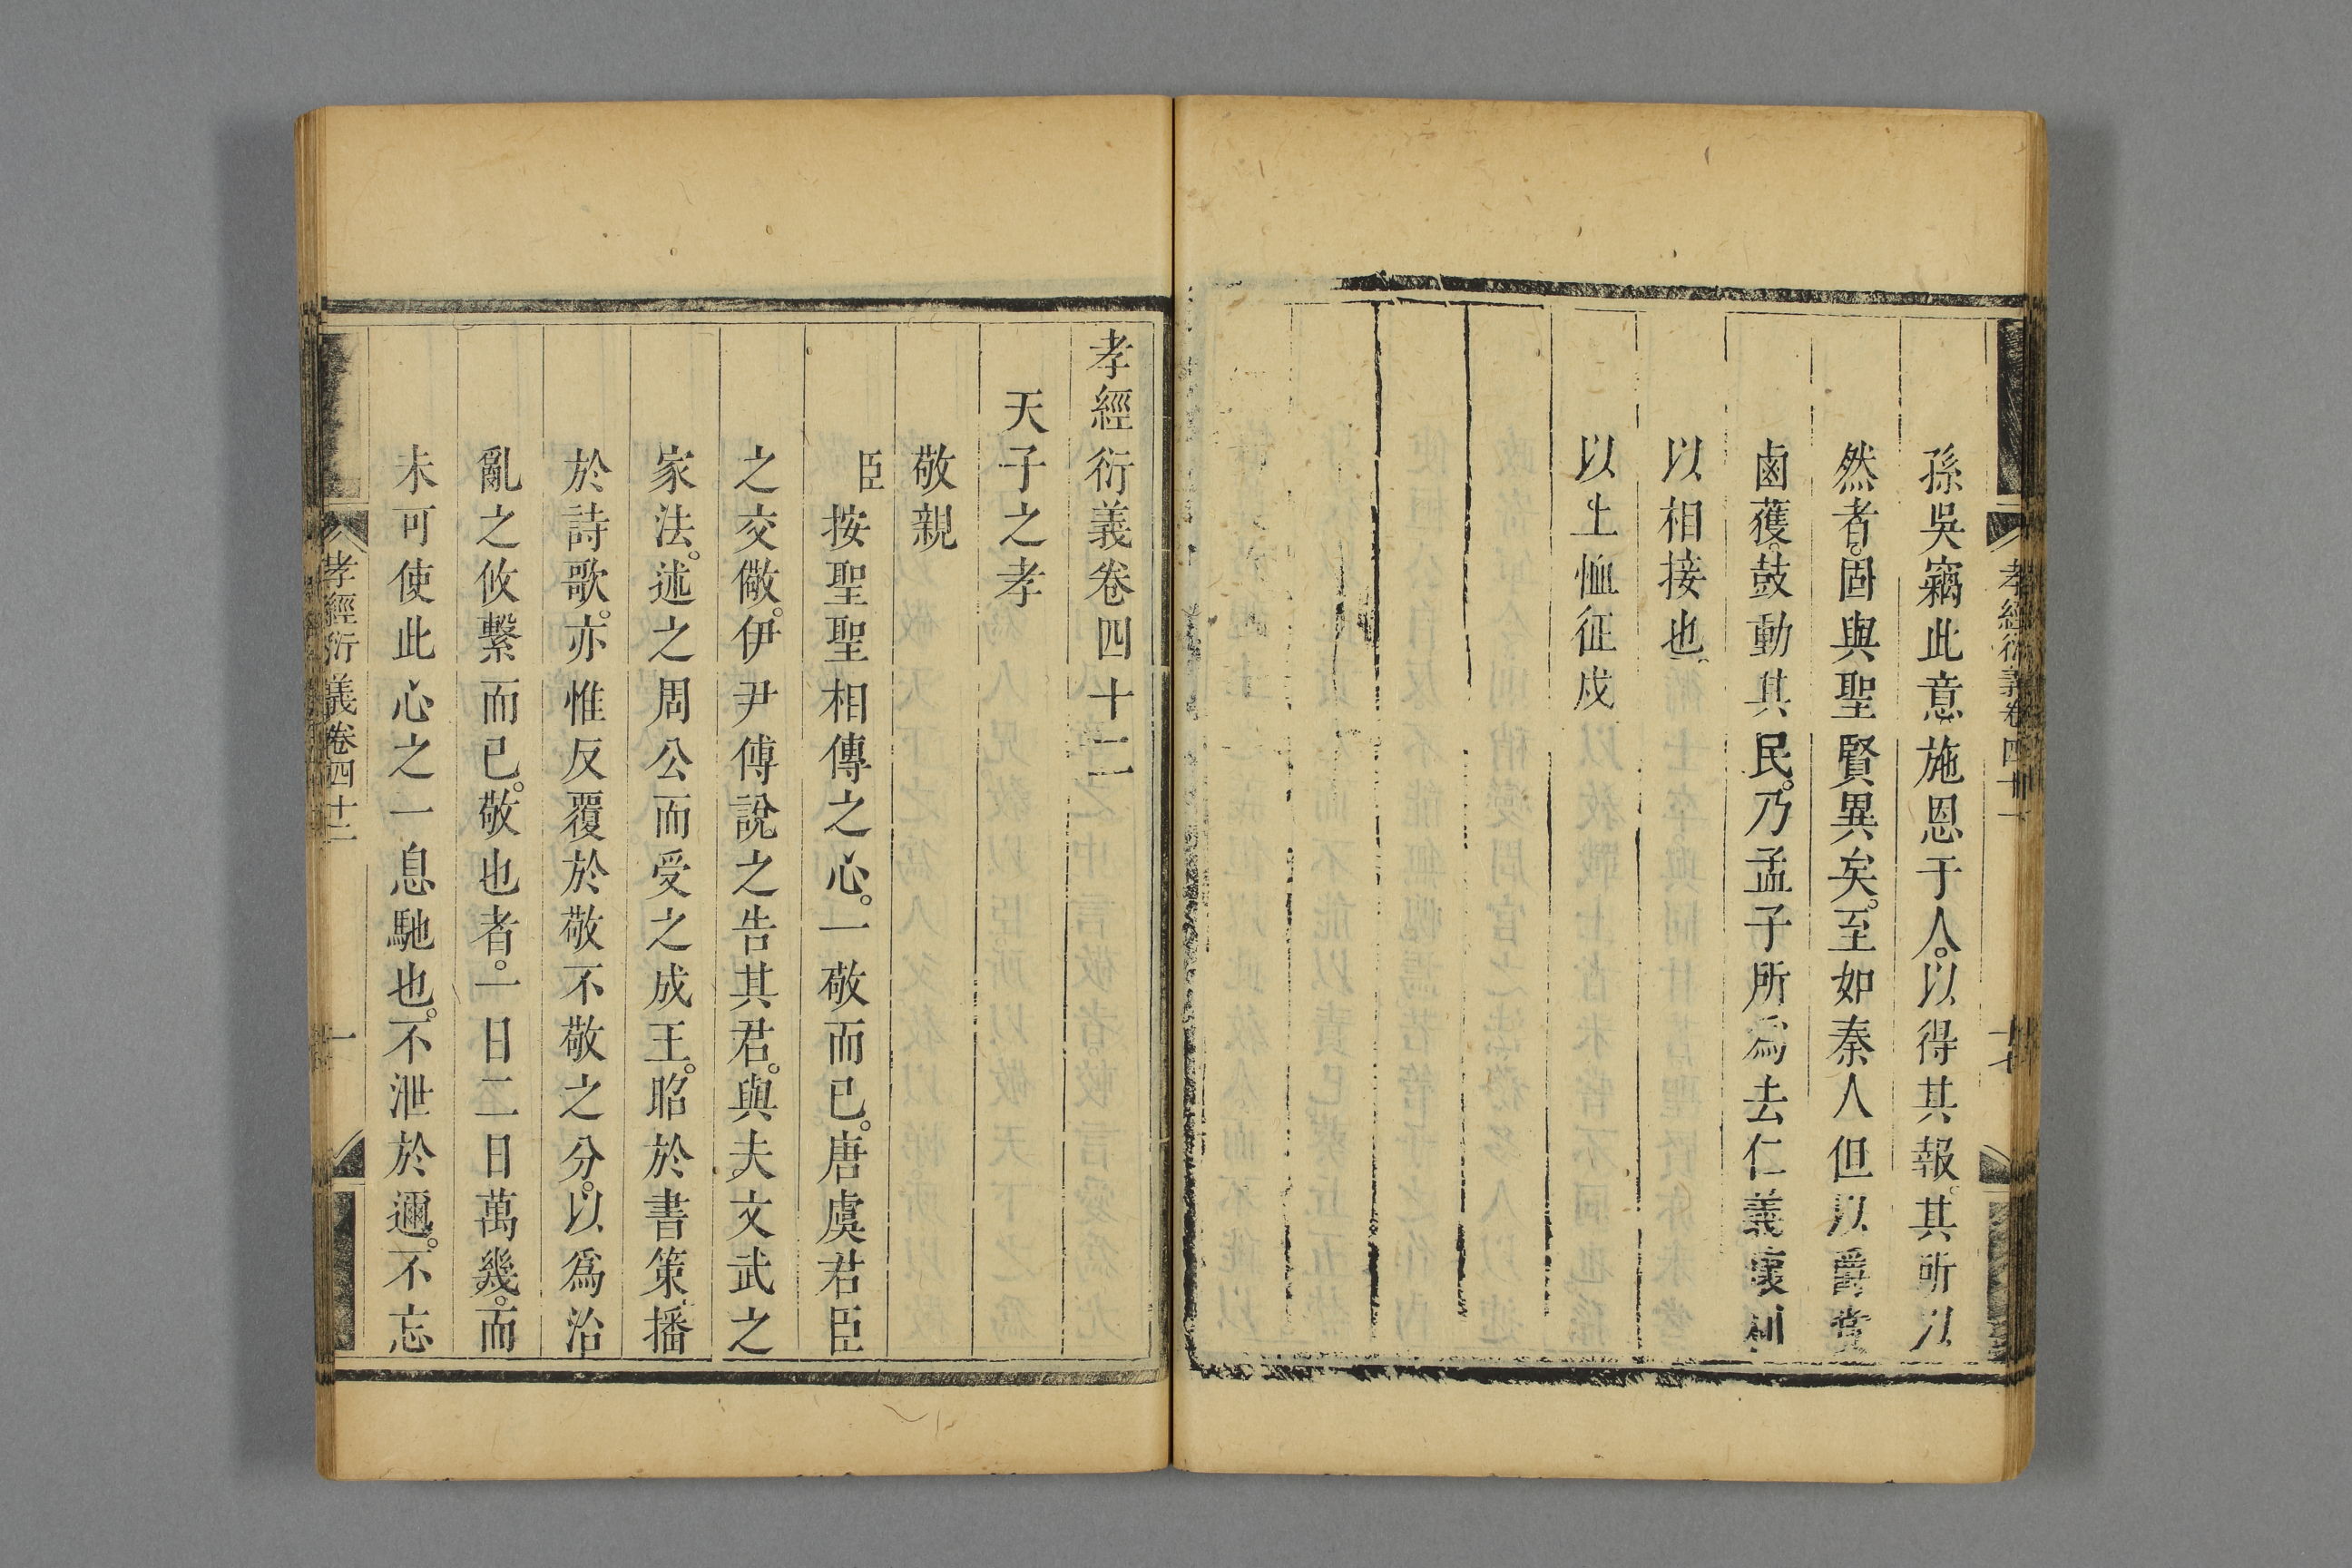 孫吳竊此意施恩于人。以得其報。其所以
然者。固與聖賢異矣。至如秦人但以爵賞
鹵獲。鼓動其民。乃孟子所爲去仁義懷利
以相接也。
以上恤征戍
孝經衍義卷四十一
十七
孝經衍義卷四十二
天子之孝
敬親
臣按聖聖相傳之心。一敬而已。唐虞君臣
之交儆。伊尹傅說之告其君。與夫文武之
家法。述之周公而受之成王。昭於書策播
於詩歌。亦惟反覆於敬不敬之分。以爲治
亂之攸繫而已。敬也者。一日二日萬幾。而
未可使此心之一息馳也。不泄於邇。不忘
孝經衍義卷四十二
一